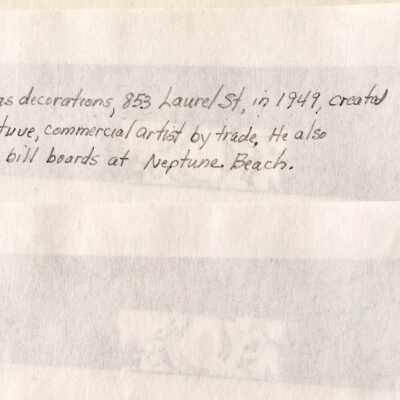 as decorations, 853 Laurel St, in 1949, created
commercial artist by trade. He also
bill boards at Neptune Beach.